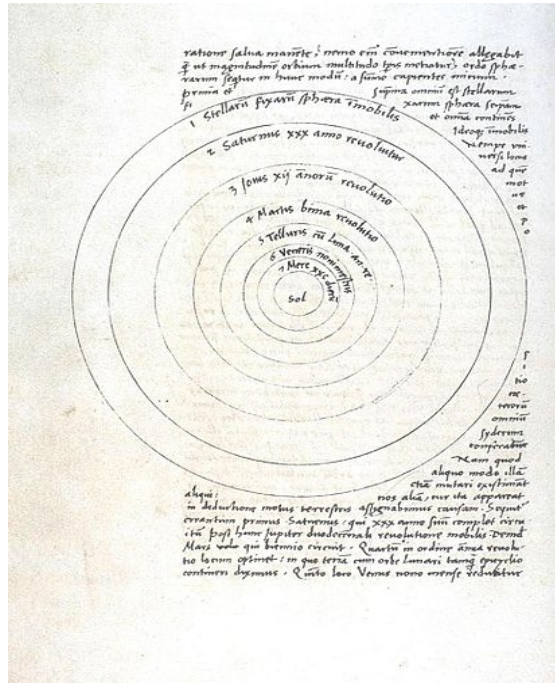 ratione salva manēte, nemo em̄ convenientiorē allegabit
q̄ ut magnitudinē orbium multitudo tp̄is metiatur, ordo sphæ-
rarum seqtur in hunc modū: a sūmo capientes initium.
prima et sup̄ma omniū est stellarum
fixarum sphæra seip̄am
et omīa continēs
Ideoq; īmobilis
nempe uni-
versi locus
ad quē
mot
us
et
p
o
1 Stellarū fixarū sphæra īmobilis
2 Saturnus xxx anno revolvitur
3 Jovis xij annorū revolutio
4 Martis bima revolutio
5 Telluris cū Luna an. re.
6 Veneris nonimestris
7 Merc xxc dierū
Sol
s
i
tio
cæ-
terorū
omniū
syderum
conferatur
Nam quod
aliquo modo illā
etiā mutari existimāt
aliqui: nos aliā, cur ita appareat
in deductione motus terrestris assignabimus causam. Sequit
errantium primus Saturnus: qui xxx anno suū complet circu
itū post hunc Jupiter duodecennali revolutione mobilis. Deind
Mars qui biennio circuit. Quartū in ordine annua revolu-
tio locum optinet: in quo terrā cum orbe Lunari tanq epicyclo
contineri diximus. Quīto loco Venus nono mense reducitur